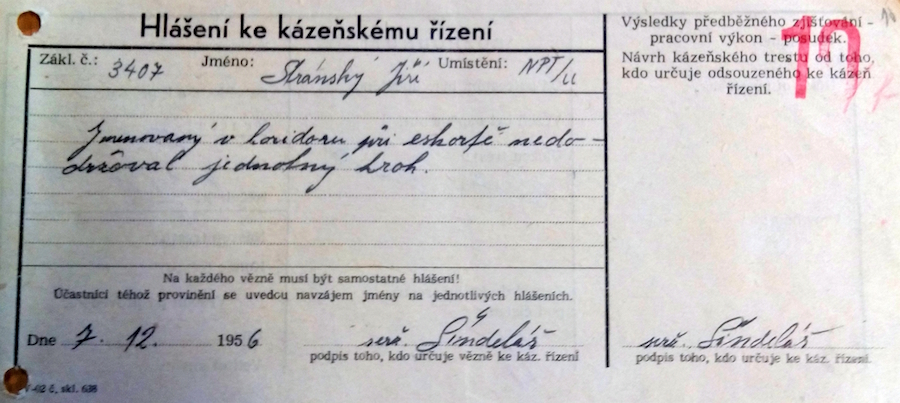 Hlášení ke kázeňskému řízení
Zákl. č.: 3407 Jméno: Stránský Jiří Umístění: NPT/II
Jmenovaný v koridoru při eskortě nedo-
držoval jednotný krok.
Na každého vězně musí být samostatné hlášení!
Účastníci téhož provinění se uvedou navzájem jmény na jednotlivých hlášeních.
Dne 7. 12. 1956 serž. Šindelář
podpis toho, kdo určuje vězně ke káz. řízení
V-62 č. skl. 638
Výsledky předběžného zjišťování -
pracovní výkon - posudek.
Návrh kázeňského trestu od toho,
kdo určuje odsouzeného ke kázeň
řízení.
serž. Šindelář
podpis toho, kdo určuje ke káz. řízení.